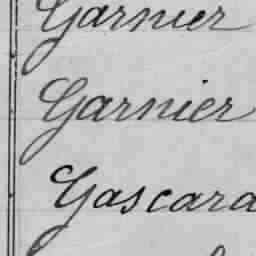 Garnier
Garnier
Gascara